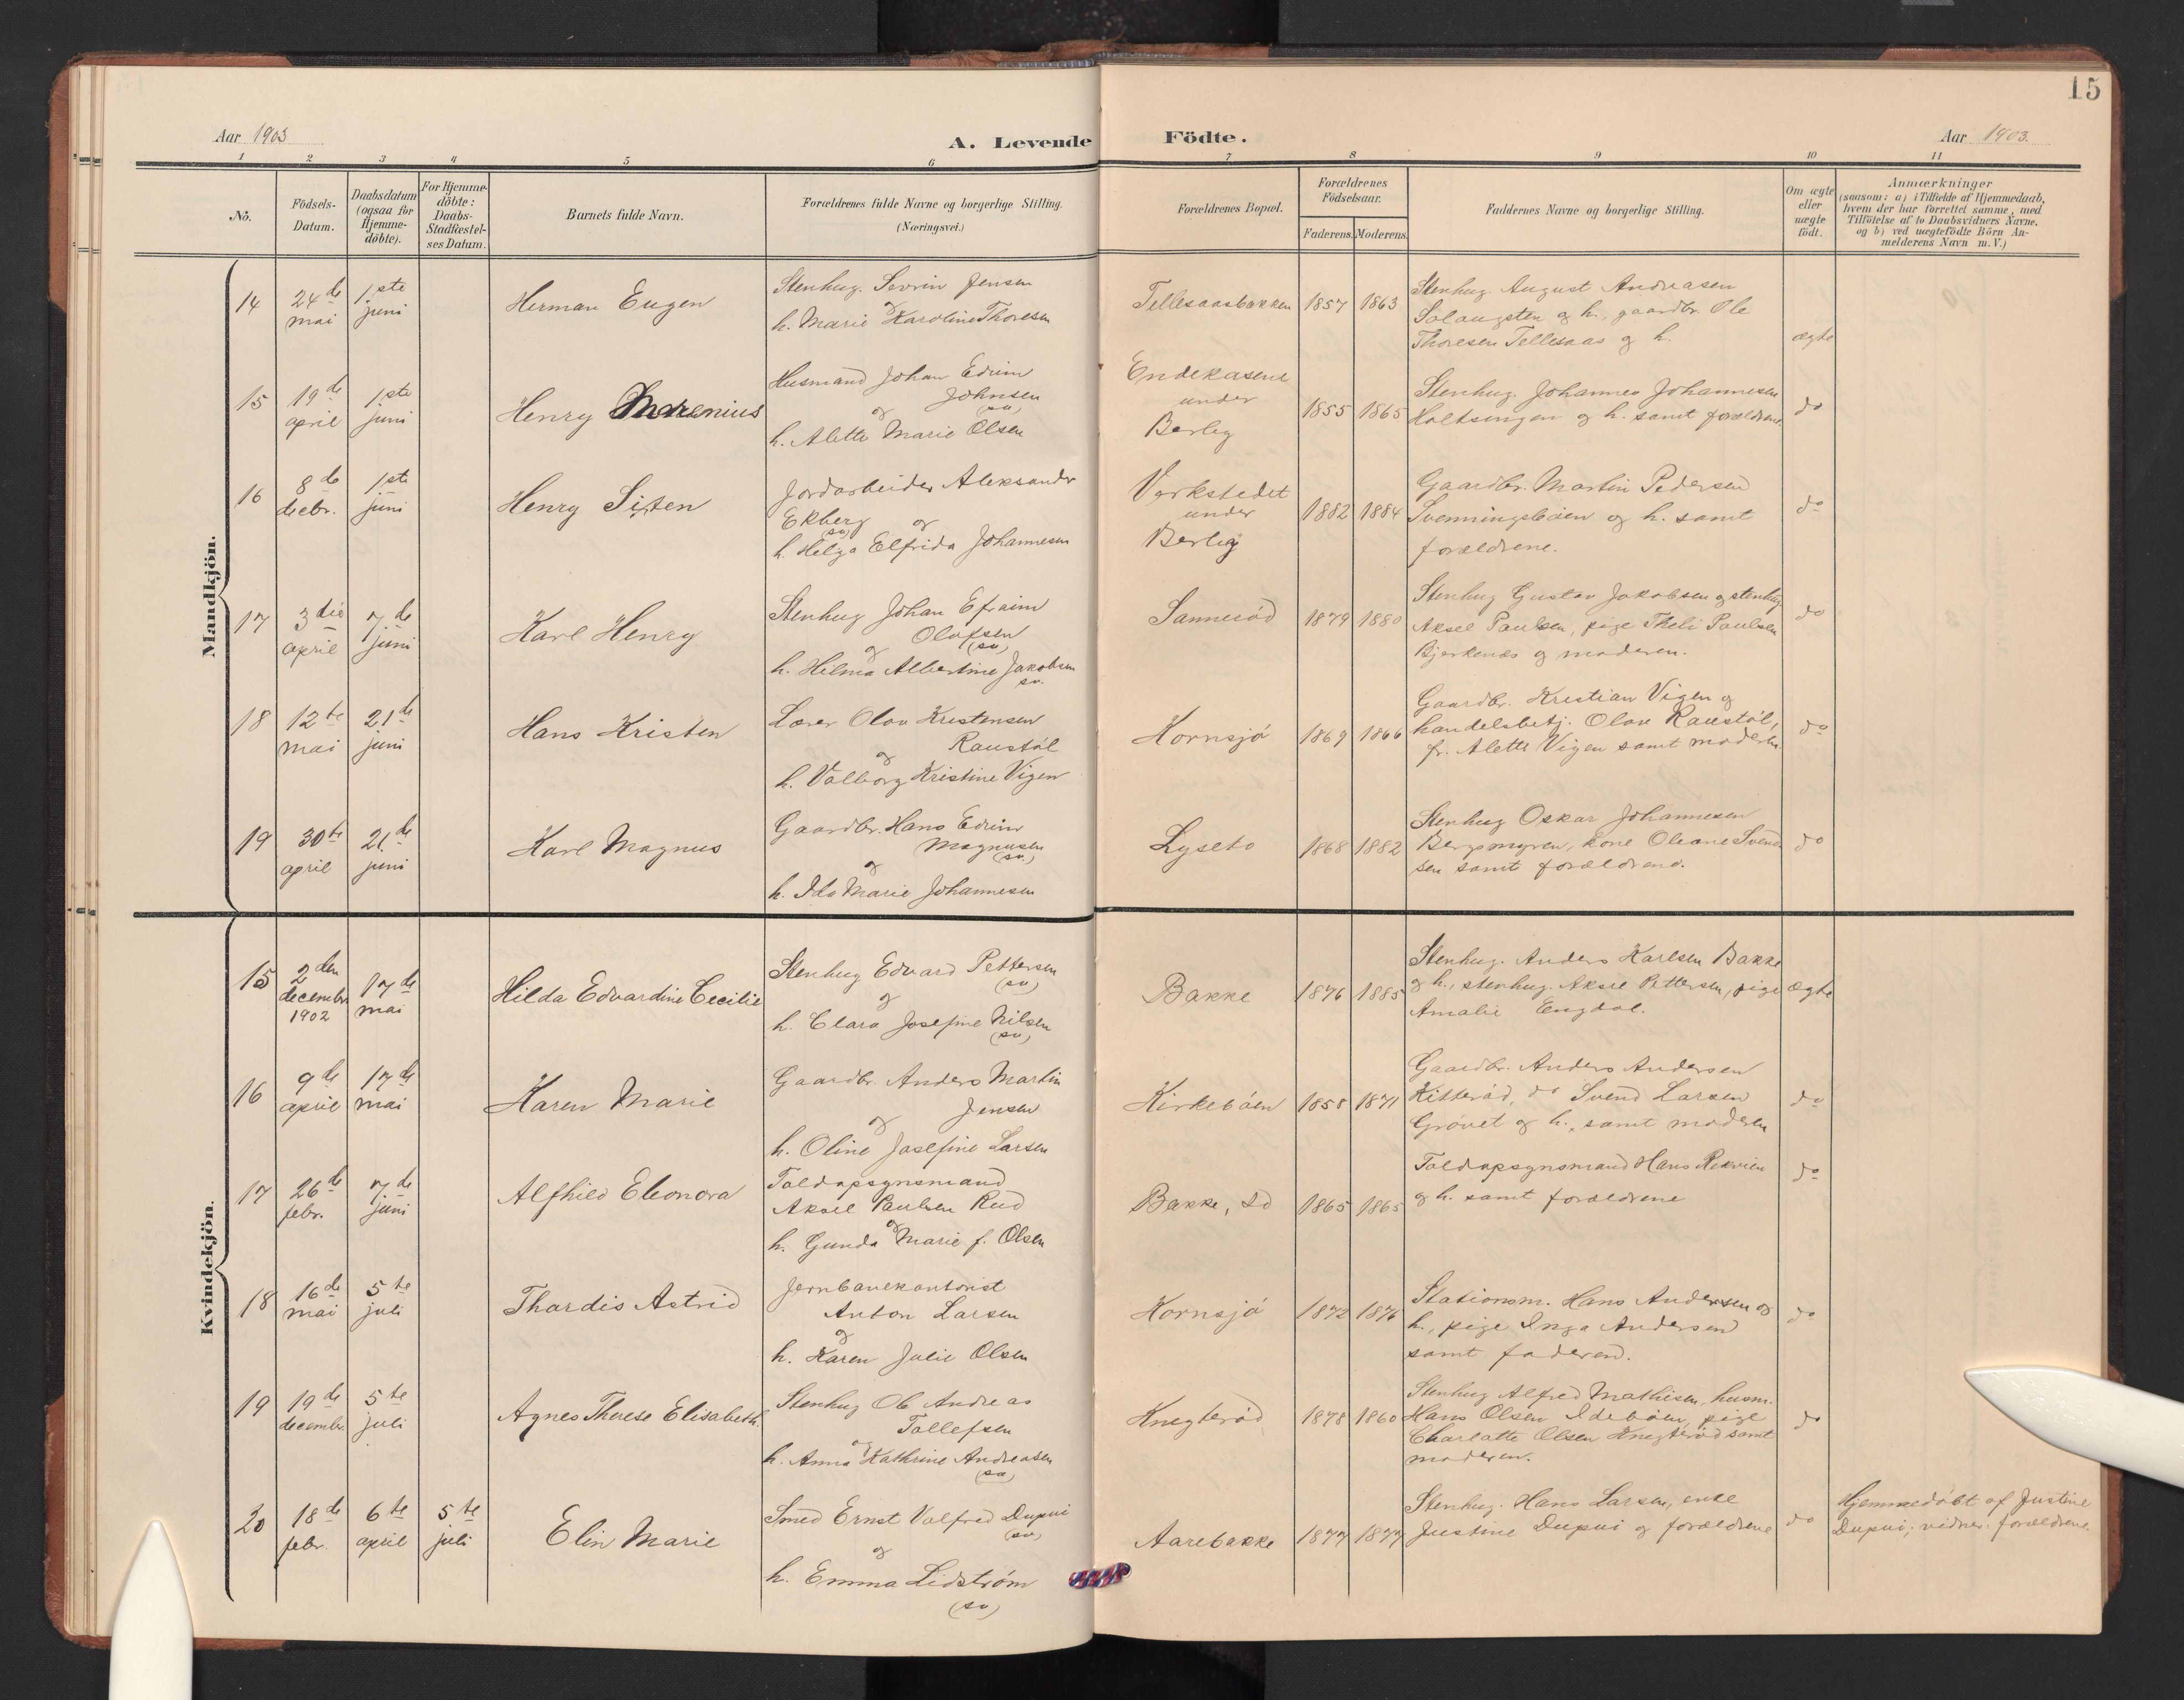 15
Aar 1903
A. Levende Födte.
Aar 1903.
1 2 3 4 5 6 7 8 9 10 11
No.
Födsels-Datum.
Daabsdatum (ogsaa for Hjemmedöbte).
For Hjemmedöbte: Daabs-Stadfæstelses Datum.
Barnets fulde Navn.
Forældrenes fulde Navne og borgerlige Stilling. (Næringsvei.)
Forældrenes Bopæl.
Forældrenes Födselsaar.
Faderens. Moderens.
Faddernes Navne og borgerlige Stilling.
Om ægte eller uægte födt.
Anmærkninger
(saasom: a) i Tilfælde af Hjemmedaab, hvem der har forrettet samme, med Tilföielse af to Daabsvidners Navne. og b) ved uægtefödte Börn Anmelderens Navn m.V.)
Mandkjön.
14
24de mai
1ste juni
Herman Eugen
Stenhug. Sevrin Jensen
og
h. Marie Karoline Thoresen
Tellesaasbakken
1857 1863
Stenhug. August Andreasen
Solaugsten og h., gaardbr. Ole
Thoresen Tellesaas og h.
ægte
15
19de april
1ste juni
Henry Marenius
Husmand Johan Edvin
Johnsen
(sv)
og
h. Alette Marie Olsen
Endekasene
under
Berby
1855 1865
Stenhug. Johannes Johannesen
Holtsengen og h. samt forældrene.
do
16
8de decbr.
1ste juni
Henry Sixten
Jordarbeider Aleksander
Ekberg og
(sv)
h. Helga Elfrida Johannesen
Verkstedet
under
Berby
1882 1884
Gaardbr. Martin Pedersen
Svenningsbøen og h. samt
forældrene.
do
17
3die april
7de juni
Karl Henry
Stenhug Johan Efraim
Olofsen
(sv)
og
h. Hilma Albertine Jakobsen
sv.
Sannesød
1879 1880
Stenhug Gustav Jakobsen og stenhug
Aksel Paulsen, pige Theli Paulsen
Bjerkenæs og moderen.
do
18
12te mai
21de juni
Hans Kristen
Lærer Olav Kristensen
Raustøl
og
h. Valborg Kristine Vigen
Kornsjø
1869 1866
Gaardbr. Kristian Vigen og
handelsbetj. Olav Raustøl,
fr. Alette Vigen samt moderen.
do
19
30te april
21de juni
Karl Magnus
Gaardbr. Hans Edvin
Magnusen
(sv.)
og
h. Ida Marie Johannesen
Lyseto
1868 1882
Stenhug Oskar Johannesen
Bergsmyren, kone Oleane Svend-
sen samt forældrene.
do
Kvindekjön.
15
2den decembr. 1902
17de mai
Hilda Edvardine Cecilie
Stenhug Edvard Pettersen
(sv)
og
h. Clara Josefine Nilsen
(sv)
Bakke
1876 1885
Stenhug. Anders Karlsen Bakke
og h., stenhug. Aksel Pettersen, pige
Amalie Engdal.
ægte
16
9de april
17de mai
Karen Marie
Gaardbr. Anders Martin
Jensen
og
h. Oline Josefine Larsen
Kirkebøen
1858 1871
Gaardbr. Anders Andersen
Kitterød, do Svend Larsen
Grøvet og h., samt moderen
do
17
26de febr.
7de juni
Alfhild Eleonora
Toldopsynsmand
Aksel Paulsen Rud
og
h. Gunda Marie f. Olsen
Bakke, Id
1865 1865
Toldopsynsmand Hans Rekvien
og h. samt forældrene
do
18
16de mai
5te juli
Thordis Astrid
Jernbanekontorist
Anton Larsen
og
h. Karen Julie Olsen
Kornsjø
1872 1876
Stationsm. Hans Andersen og
h., pige Inga Andersen
samt faderen.
do
19
19de decembr.
5te juli
Agnes Therese Elisabeth.
Stenhug Ole Andreas
Tollefsen
og
h. Anna Kathrine Andreasen
(sv)
Knegterød
1878 1860
Stenhug Alfred Mathisen, husm.
Hans Olsen Idebøen, pige
Charlotte Olsen Knegterød samt
moderen.
do
20
18de febr.
6te april
5te juli
Elin Marie
Smed Ernst Valfred Dupui
(sv)
og
h. Emma Lidstrøm
(sv)
Aarebakke
1877 1877
Stenhug. Hans Larsen, enke
Justine Dupui og forældrene
do
Hjemmedøbt af Justine
Dupui; vidner: forældrene.